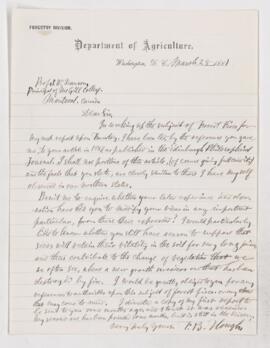 FORESTRY DIVISION.
Department of Agriculture,
Washington, D. C. March 28, 1881
Principal of McGill College.
Montreal, Canada
Dear Sir
In working up the subject of Forest Fires for
my next report upon Forestry, I have been led by the reference you gave
me to your article in 1847 as published in the Edinburgh Philosophical
Journal. I shall use portions of this article, (of course giving you credit)
and the facts that you state, are closely similar to those I have myself
observed in our northern states.
Permit me to enquire whether your later experience and obser-
vation have led you to modify your views in any important
particular, from those then expressed? I would particularly
like to learn whether you still have reason to support that
seeds will retain their vitality in the soil for very long periods
and thus contribute to the change of vegetation that we
so often see, where a new growth involves one that has been
destroyed by fire. I would be greatly obliged to you for any
upon this subject of forest fires
that may come to mind. I directed a copy of my first report to
be sent to you some months ago
Very truly yours F. B. Hough